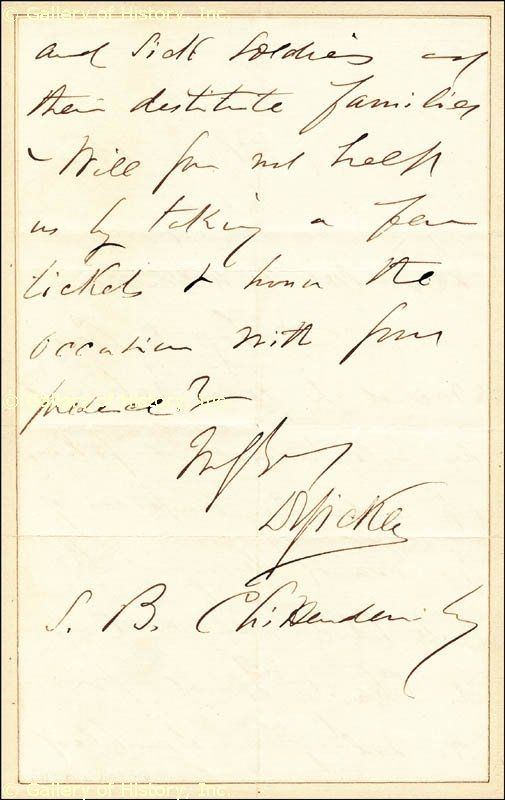 © Gallery of History, Inc.
and sick soldiers and
their destitute families
- Will you not help
us by taking a few
tickets & honor the
occasion with your
© Gallery of History, Inc.
presence?-
DSickles
S. B. Chittenden Esq
© Gallery of History, Inc.